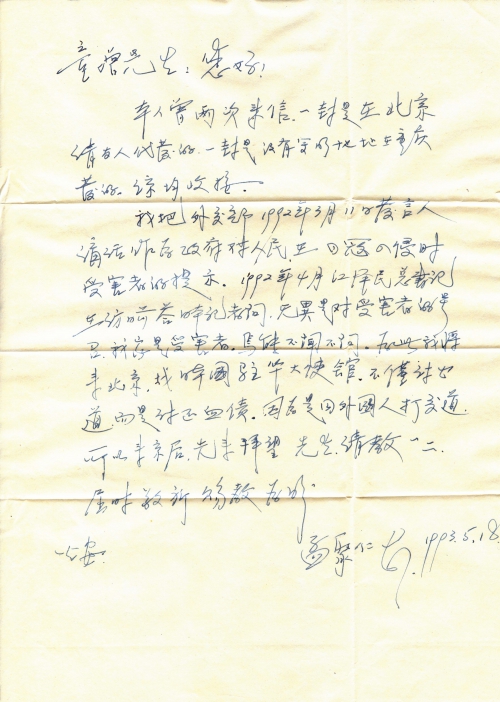 童增先生：您好！
本人曾两次来信，一封是在北京
请友人代发的，一封是没有写明地址重庆
发的，谅均收接。
我把外交部1992年3月11日发言人
讲话作为政府对人民，在日寇侵时
受害者的提示。1992年4月江泽民总书记
在访日前答日本记者问，无异是对受害者的号
召，我家是受害者，焉能不闻不问。为此我将
来北京，找日本国驻华大使馆，不仅讨公
道，而是讨还血债。因为是同外国人打交道，
所以来京后，先来拜望 先生，请教一二，
届时敬祈 赐教为盼
公安。
孟聚仁 1993.5.18.